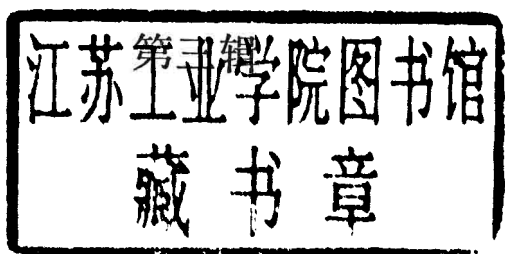 第三辑
江苏工业学院图书馆
藏书章